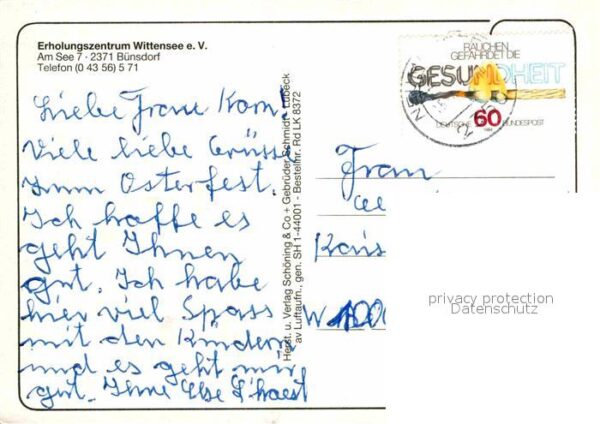 Erholungszentrum Wittensee e. V.
Am See 7 · 2371 Bünsdorf
Telefon (0 43 56) 5 71
Liebe Frau
Viele liebe Grüsse
zum Osterfest.
Ich hoffe es
geht Ihnen
gut. Ich habe
hier viel Spass
mit den Kindern
und es geht mir
gut. Ihre Else
Herst. u. Verlag Schöning & Co + Gebrüder Schmidt · Lübeck
av Luftaufn., gen. SH 1-44001 - Bestellnr. Rd LK 8372
RAUCHEN
GEFÄHRDET DIE
GESUNDHEIT
DEUTSCHE BUNDESPOST
60
1984
Frau
W 1000
privacy protection
Datenschutz